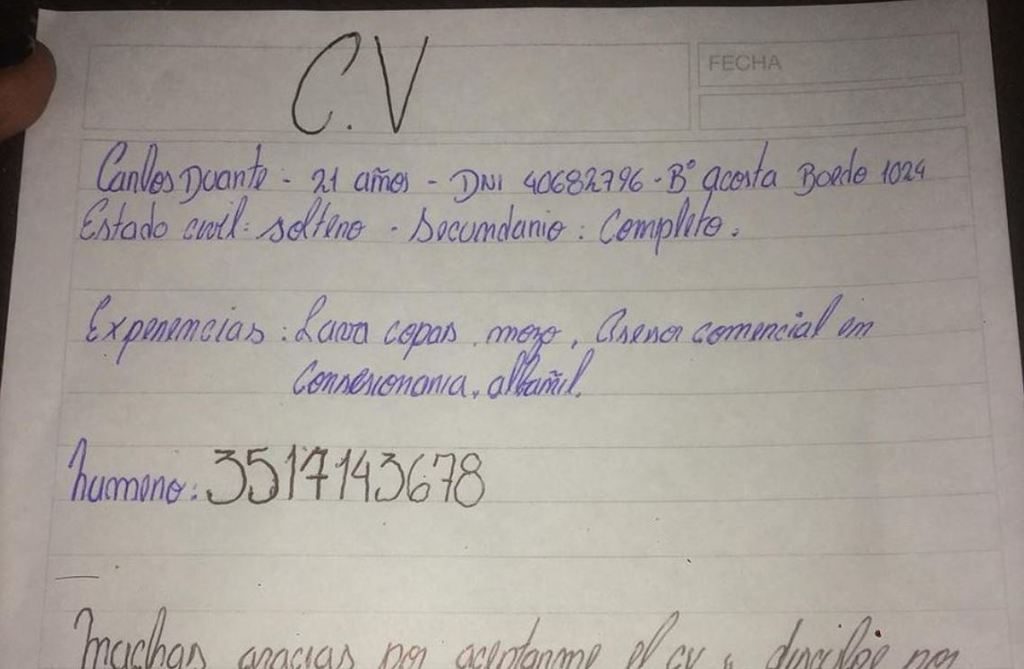 C.V
FECHA
Carlos Duarte - 21 años - DNI 40682796 - Bº acosta Boedo 1024
Estado civil: soltero - Secundario: Completo.
Experiencias: Lava copas, mozo, Asesor comercial en
Consesionaria, albañil.
numero: 3517143678
Muchas gracias por aceptarme el cv y disculpe por